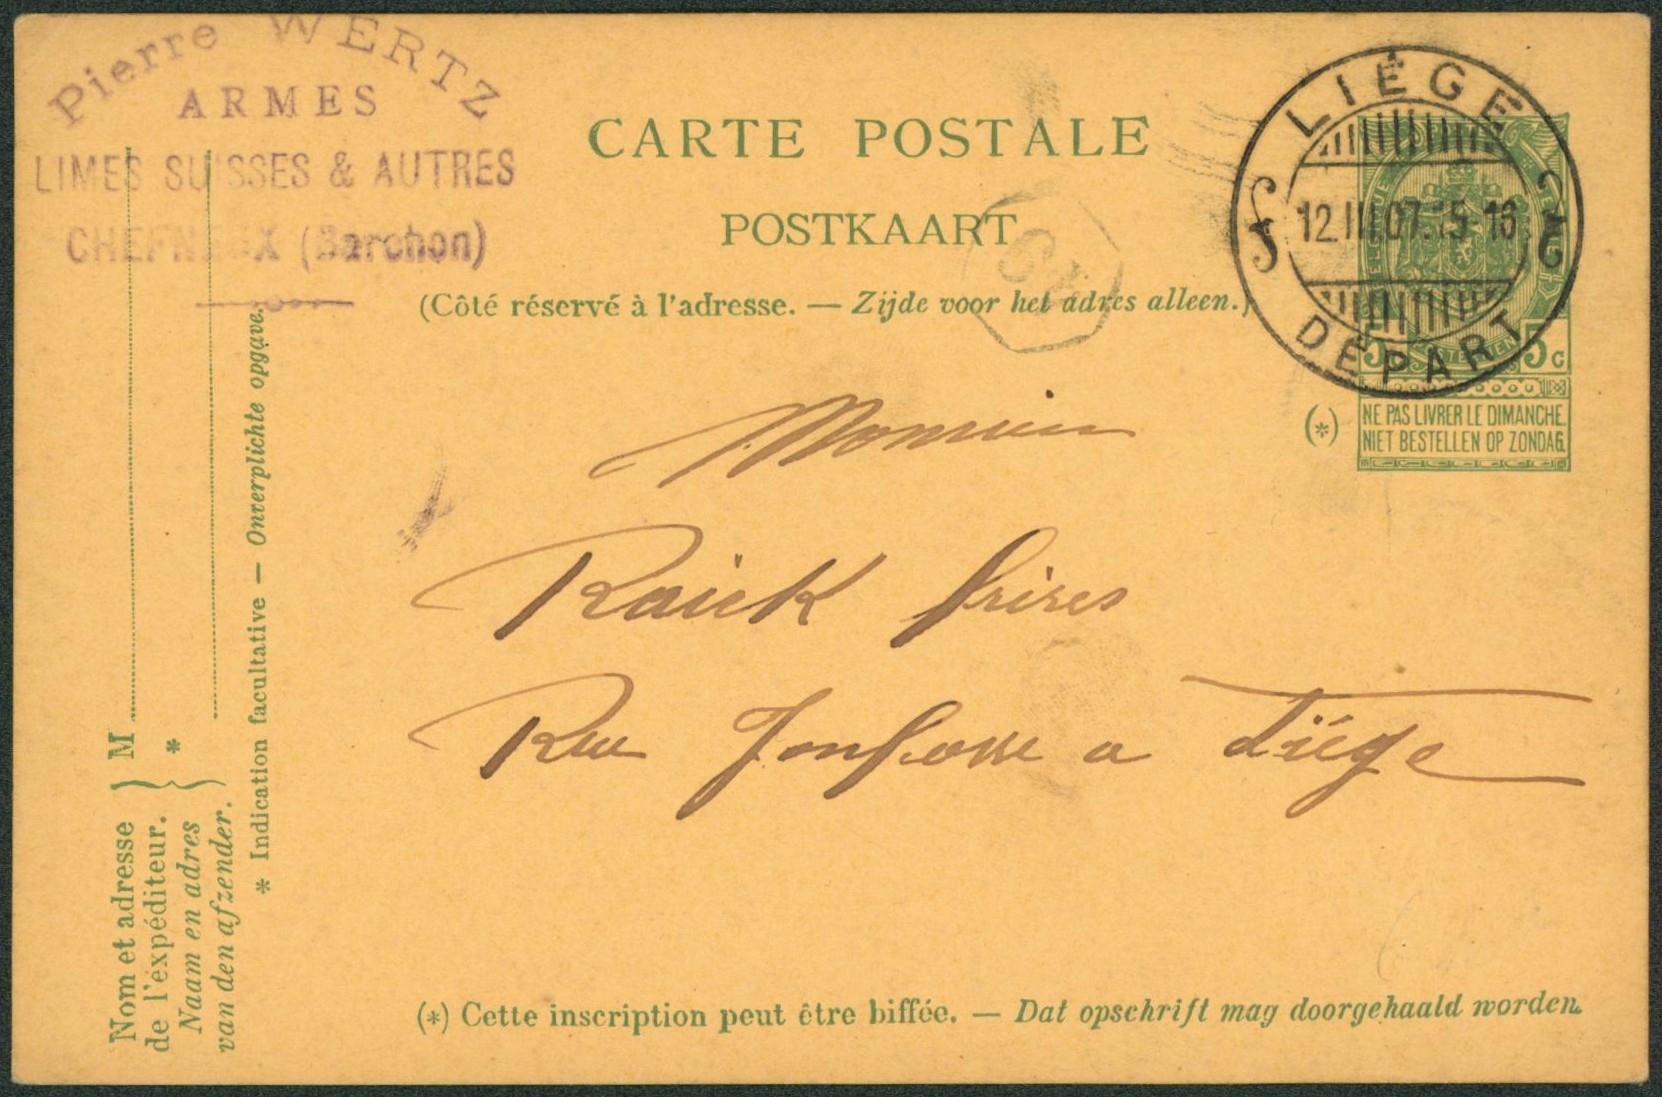 Pierre WERTZ
ARMES
LIMES SUISSES & AUTRES
CHEFNEUX (Barchon)
CARTE POSTALE
POSTKAART
(Côté réservé à l'adresse. — Zijde voor het adres alleen.)
LIÉGE
12.III.07.15-16
DÉPART
5 5 c
(*) NE PAS LIVRER LE DIMANCHE.
NIET BESTELLEN OP ZONDAG.
Monsieur
Raick frères
Rue Jonfosse a Liége
Nom et adresse
de l'expéditeur. } M
Naam en adres
van den afzender. } *
* Indication facultative — Onverplichte opgave.
(*) Cette inscription peut être biffée. — Dat opschrift mag doorgehaald worden.